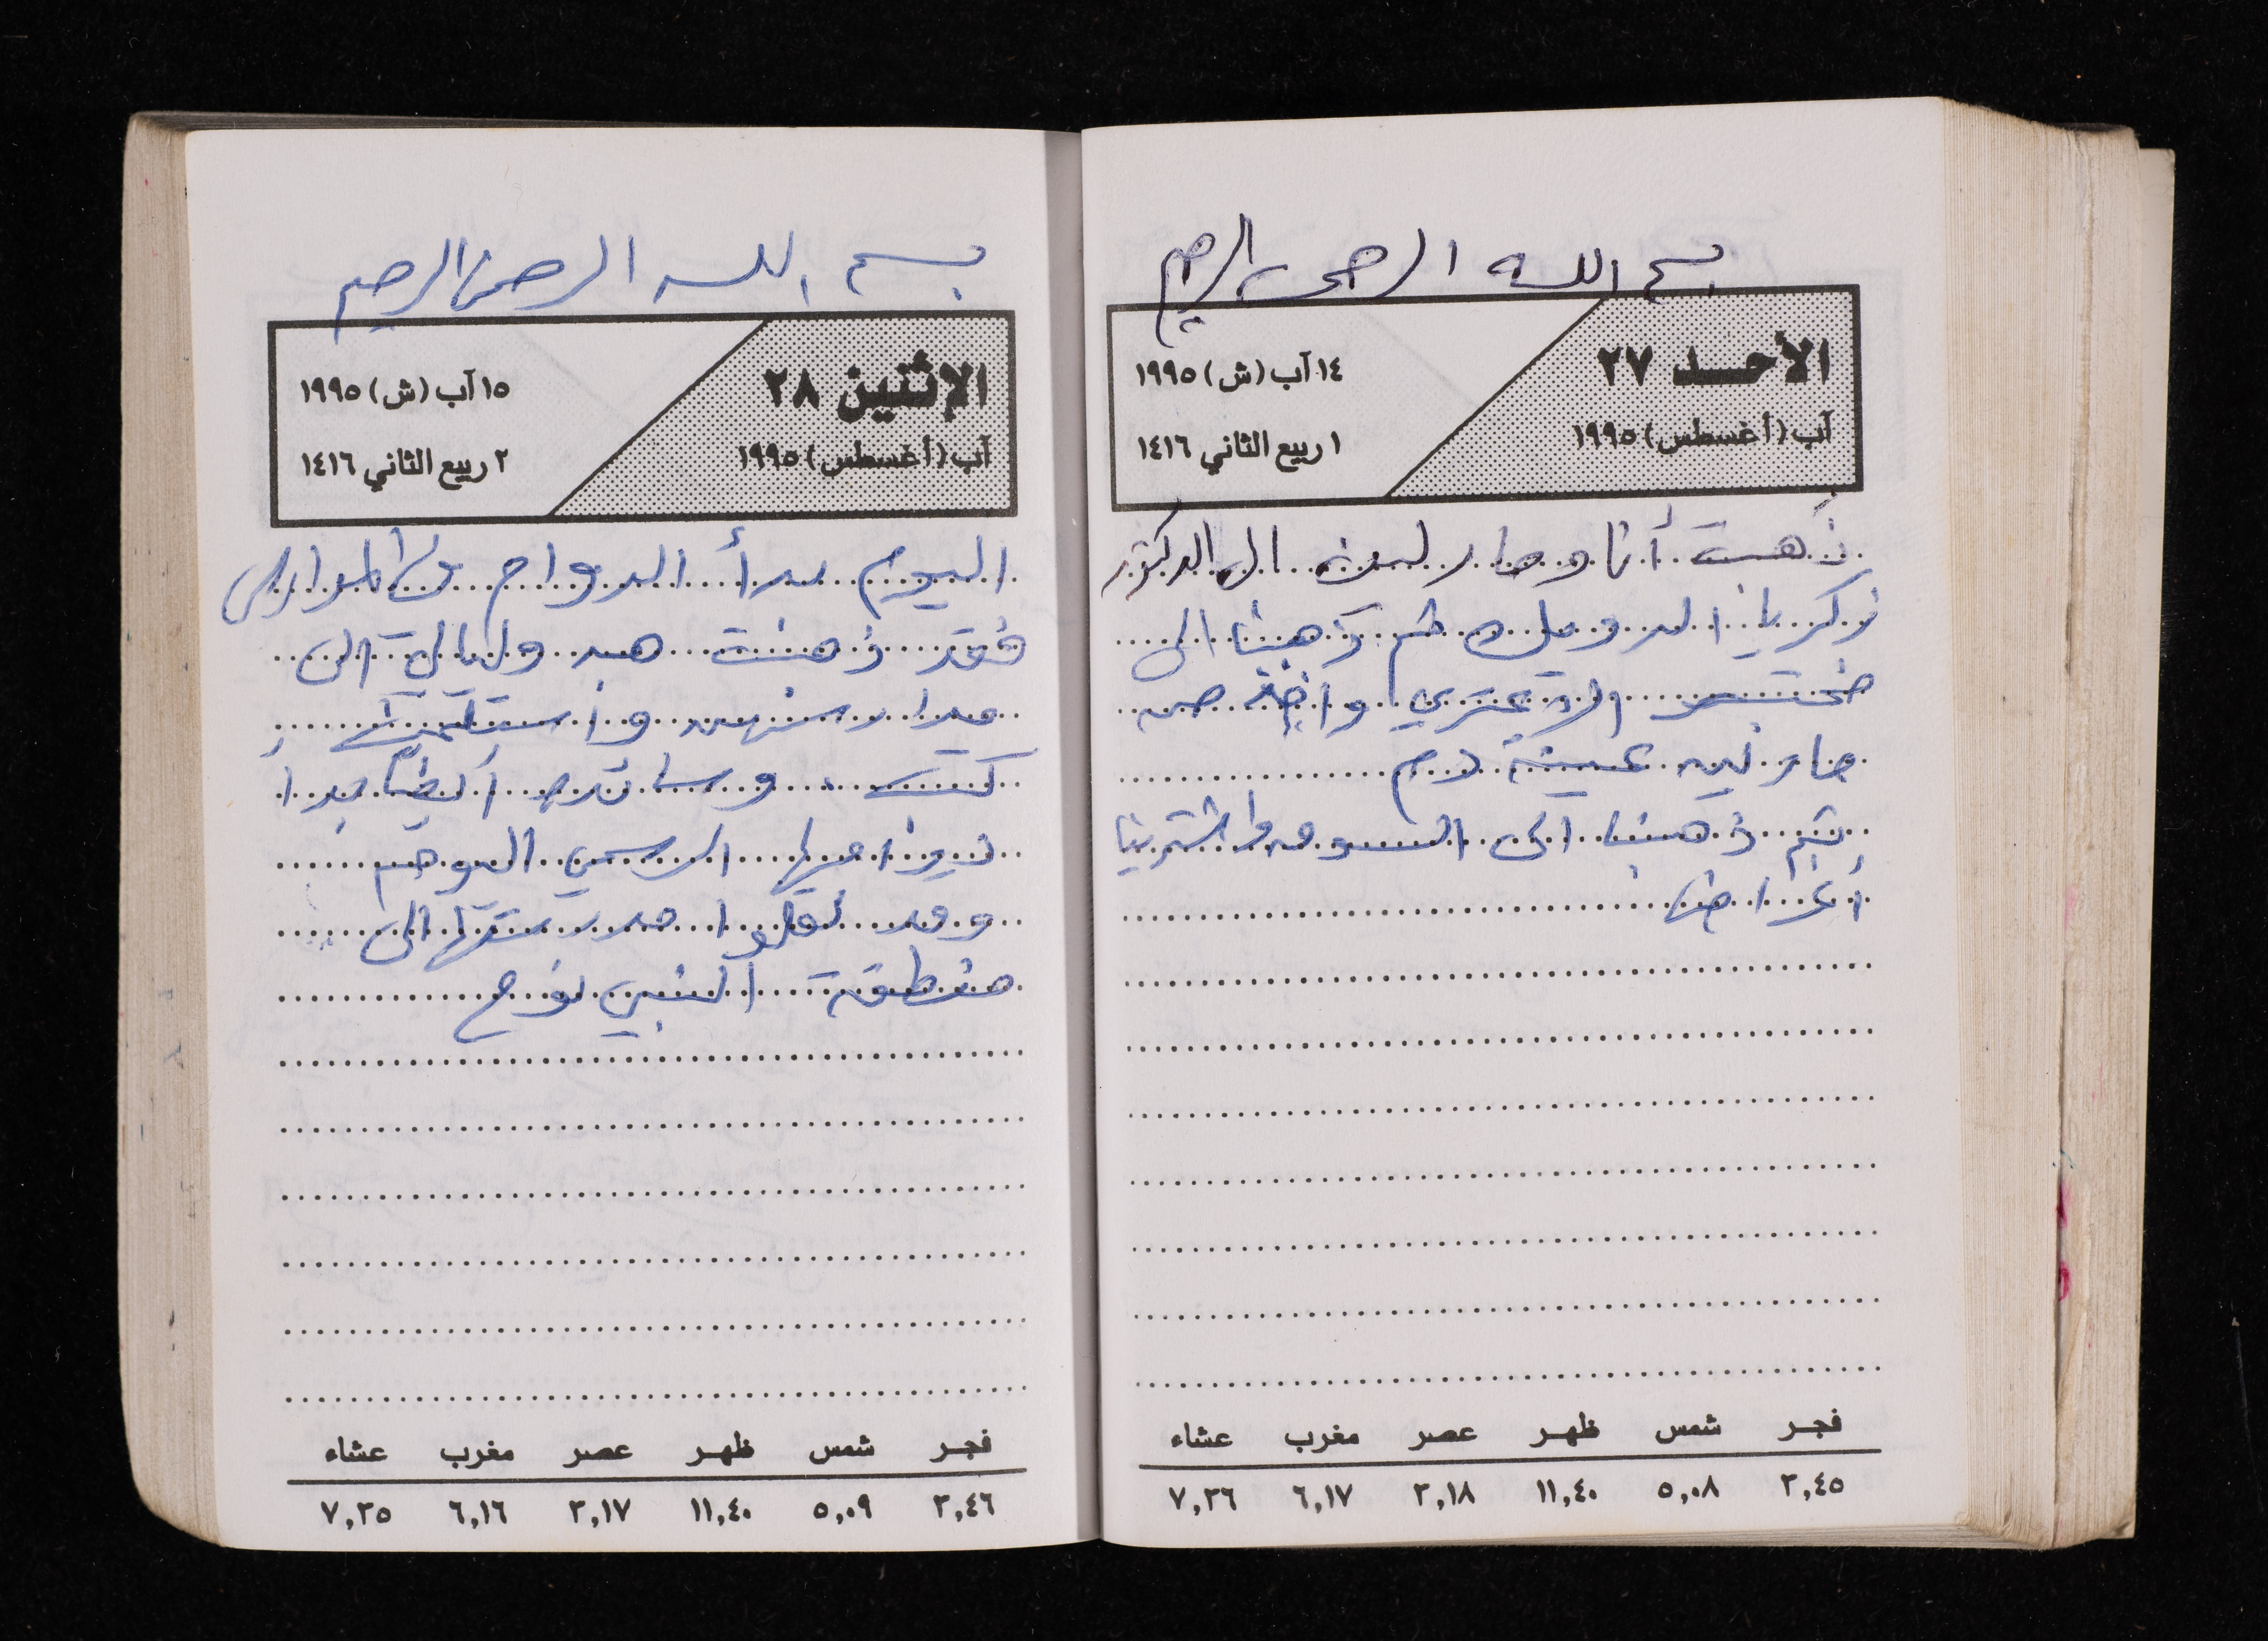 بسم الله الرحمن الرحيم
الأحد ٢٧
آب (أغسطس) ١٩٩٥
١٤ آب (ش) ١٩٩٥
١ ربيع الثاني ١٤١٦
ذهبت أنا ومارلين الى الدكتور
زكريا الدويك ثم ذهبنا الى
مختبر الازعتري واخذ من
مارلين عينة دم
ثم ذهبنا الى السوق واشترينا
أغراض
فجر شمس ظهر عصر مغرب عشاء
٣,٤٥ ٥,٠٨ ١١,٤٠ ٣,١٨ ٦,١٧ ٧,٣٦
بسم الله الرحمن الرحيم
الإثنين ٢٨
آب (أغسطس) ١٩٩٥
١٥ آب (ش) ١٩٩٥
٢ ربيع الثاني ١٤١٦
اليوم بدأ الدوام في المدارس
فقد ذهبت هبه وليالي الى
مدارسهن واستلمت
كتب وساندره أيضا بدأ
دوامها الرسمي اليوم
وقد نقلوا مدرستها الى
منطقة النبي نوح
فجر شمس ظهر عصر مغرب عشاء
٣,٤٦ ٥,٠٩ ١١,٤٠ ٣,١٧ ٦,١٦ ٧,٣٥